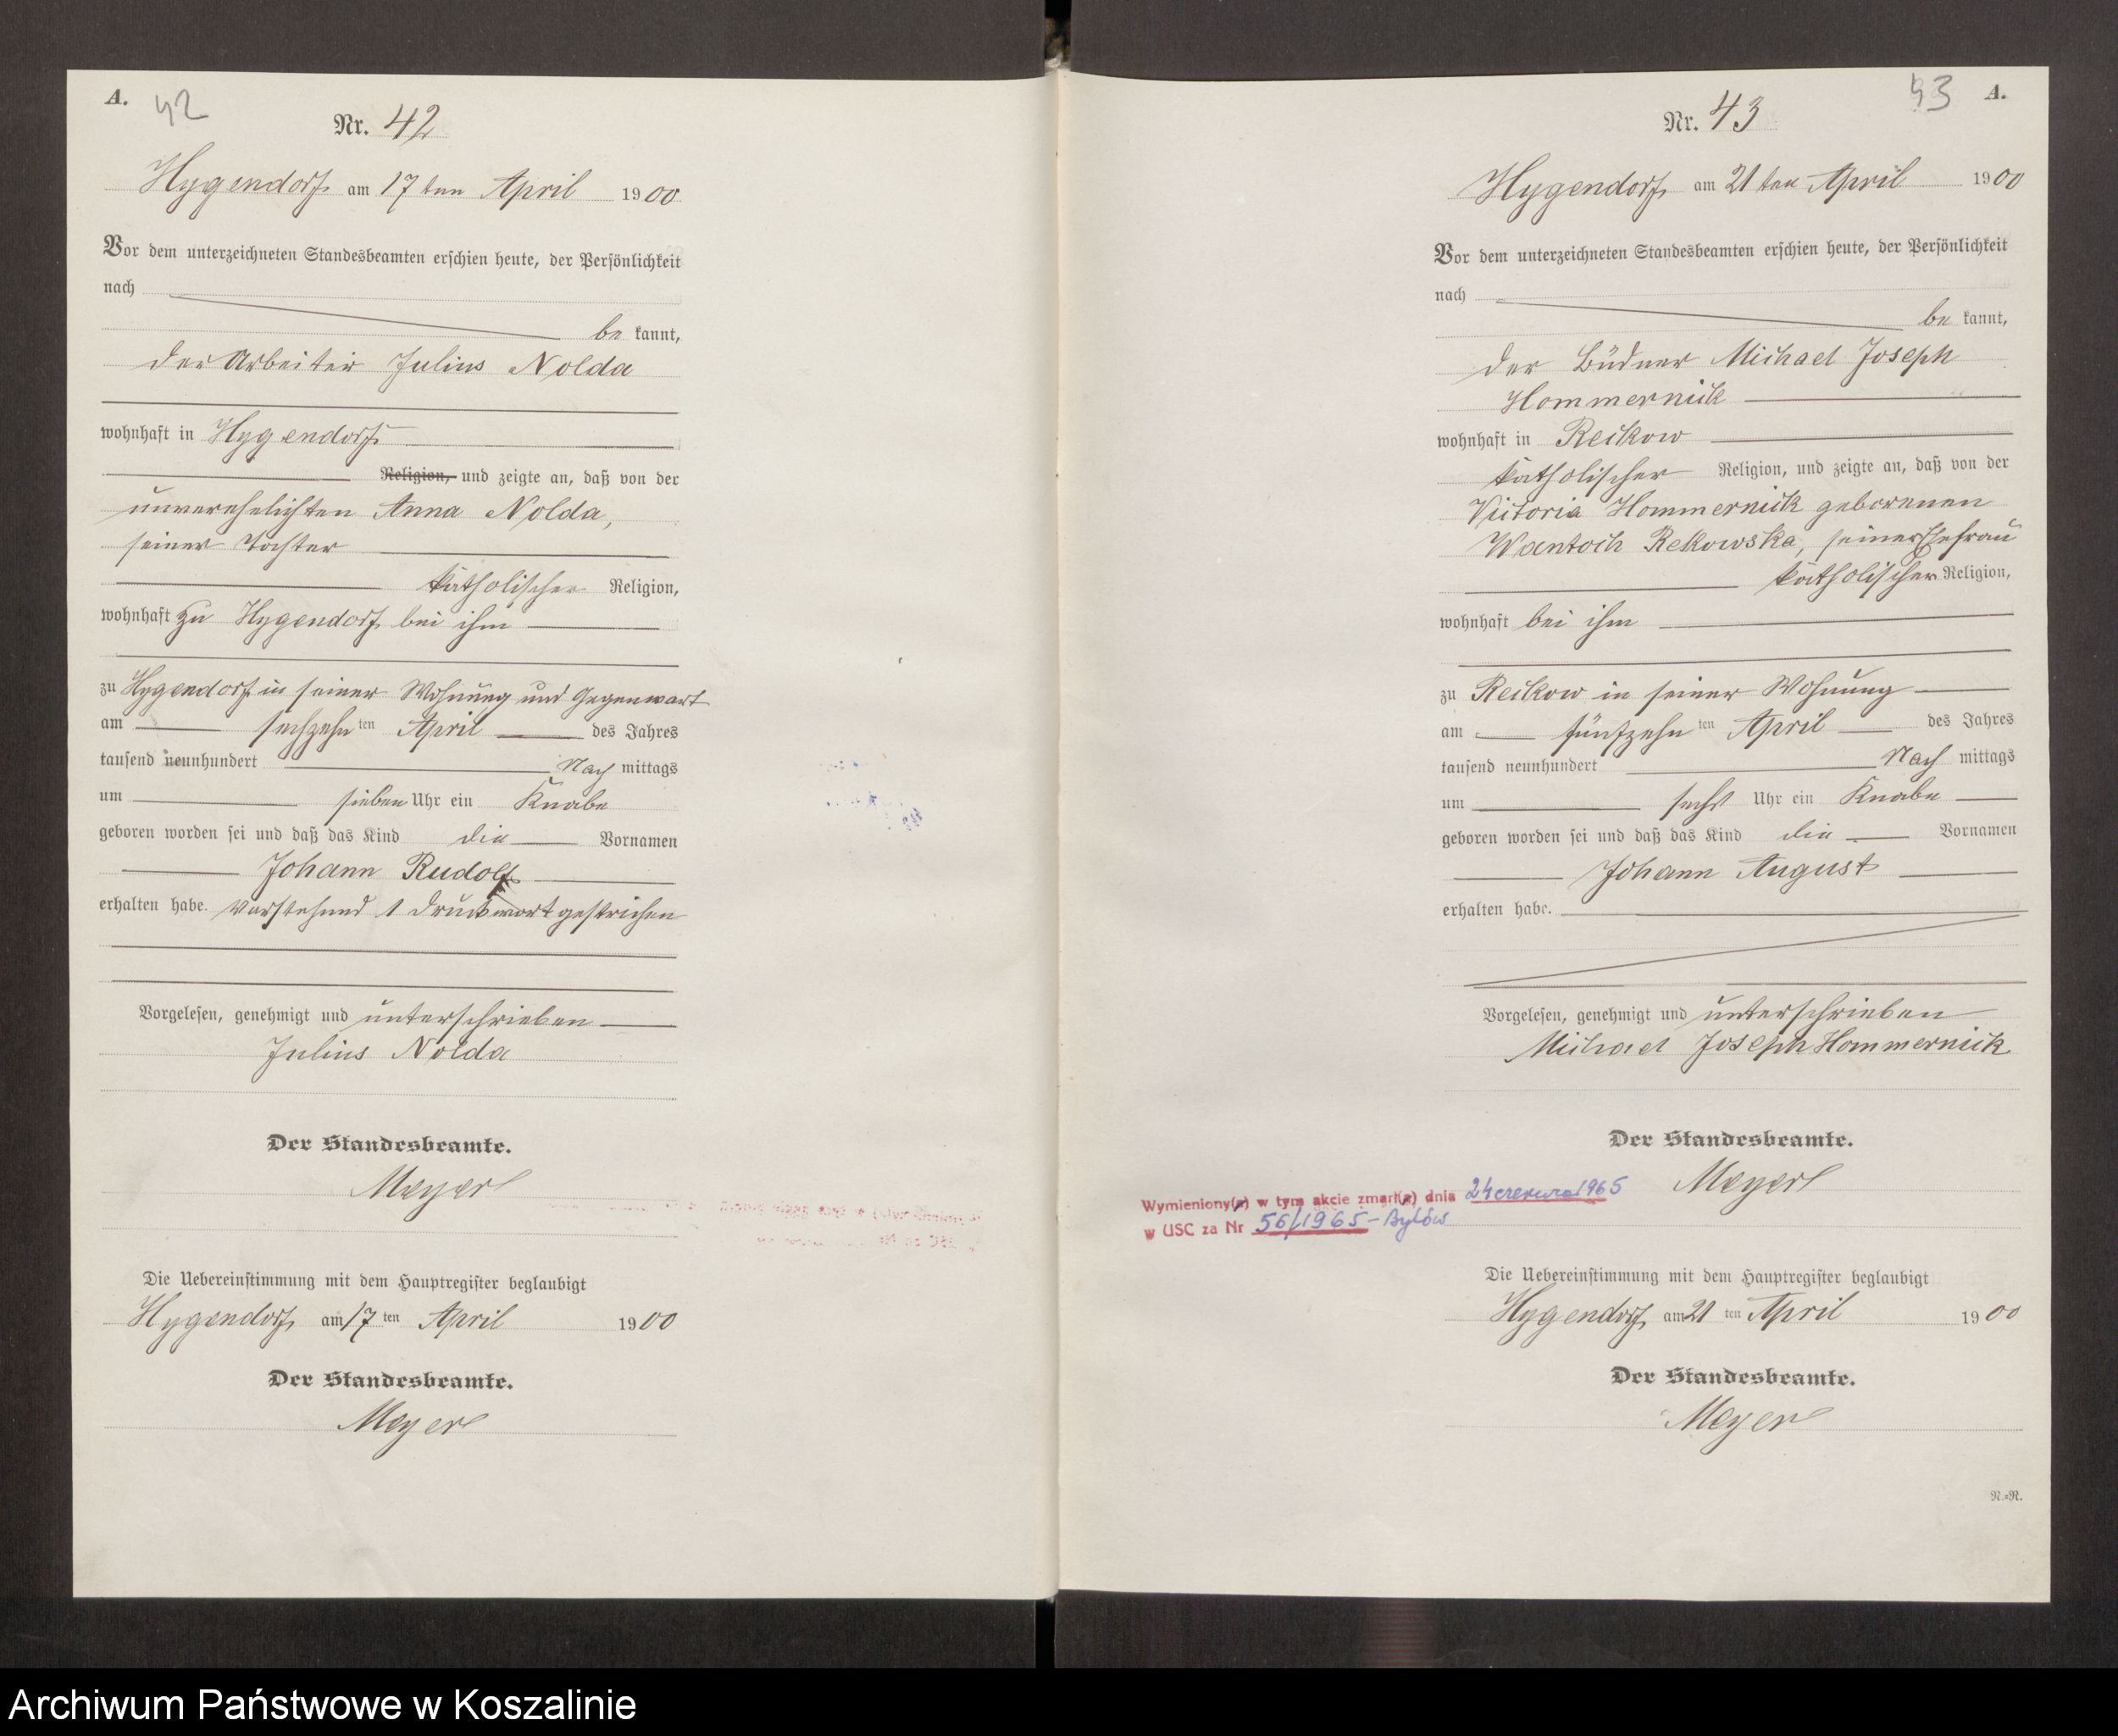 A. 42
Nr. 42
Hygendorf am 17ten April 1900
Vor dem unterzeichneten Standesbeamten erschien heute, der Persönlichkeit
nach
be kannt,
der Arbeiter Julius Nolda
wohnhaft in Hygendorf
Religion, und zeigte an, daß von der
unverehelichten Anna Nolda,
seiner Tochter
katholischer Religion,
wohnhaft zu Hygendorf bei ihm
zu Hygendorf in seiner Wohnung und Gegenwart
am sechzehn ten April des Jahres
tausend neunhundert Nach mittags
um sieben Uhr ein Knabe
geboren worden sei und daß das Kind die Vornamen
Johann Rudolf
erhalten habe. Vorstehend 1 Druckwort gestrichen
Vorgelesen, genehmigt und unterschrieben
Julius Nolda
Der Standesbeamte.
Meyer
Die Uebereinstimmung mit dem Hauptregister beglaubigt
Hygendorf am 17 ten April 1900
Der Standesbeamte.
Meyer
43 A.
Nr. 43
Hygendorf am 21ten April 1900
Vor dem unterzeichneten Standesbeamten erschien heute, der Persönlichkeit
nach
be kannt,
der Büdner Michael Joseph
Hommernick
wohnhaft in Reckow
katholischer Religion, und zeigte an, daß von der
Victoria Hommernick geborenen
Wantoch Rekowska, seiner Ehefrau
katholischer Religion,
wohnhaft bei ihm
zu Reckow in seiner Wohnung
am fünfzehn ten April des Jahres
tausend neunhundert Nach mittags
um sechs Uhr ein Knabe
geboren worden sei und daß das Kind die Vornamen
Johann August
erhalten habe.
Vorgelesen, genehmigt und unterschrieben
Michael Joseph Hommernick
Der Standesbeamte.
Meyer
Wymieniony(a) w tym akcie zmarł(a) dnia 24 czerwca 1965
w USC za Nr 56/1965 - Bytów
Die Uebereinstimmung mit dem Hauptregister beglaubigt
Hygendorf am 21 ten April 1900
Der Standesbeamte.
Meyer
N.=N.
Archiwum Państwowe w Koszalinie